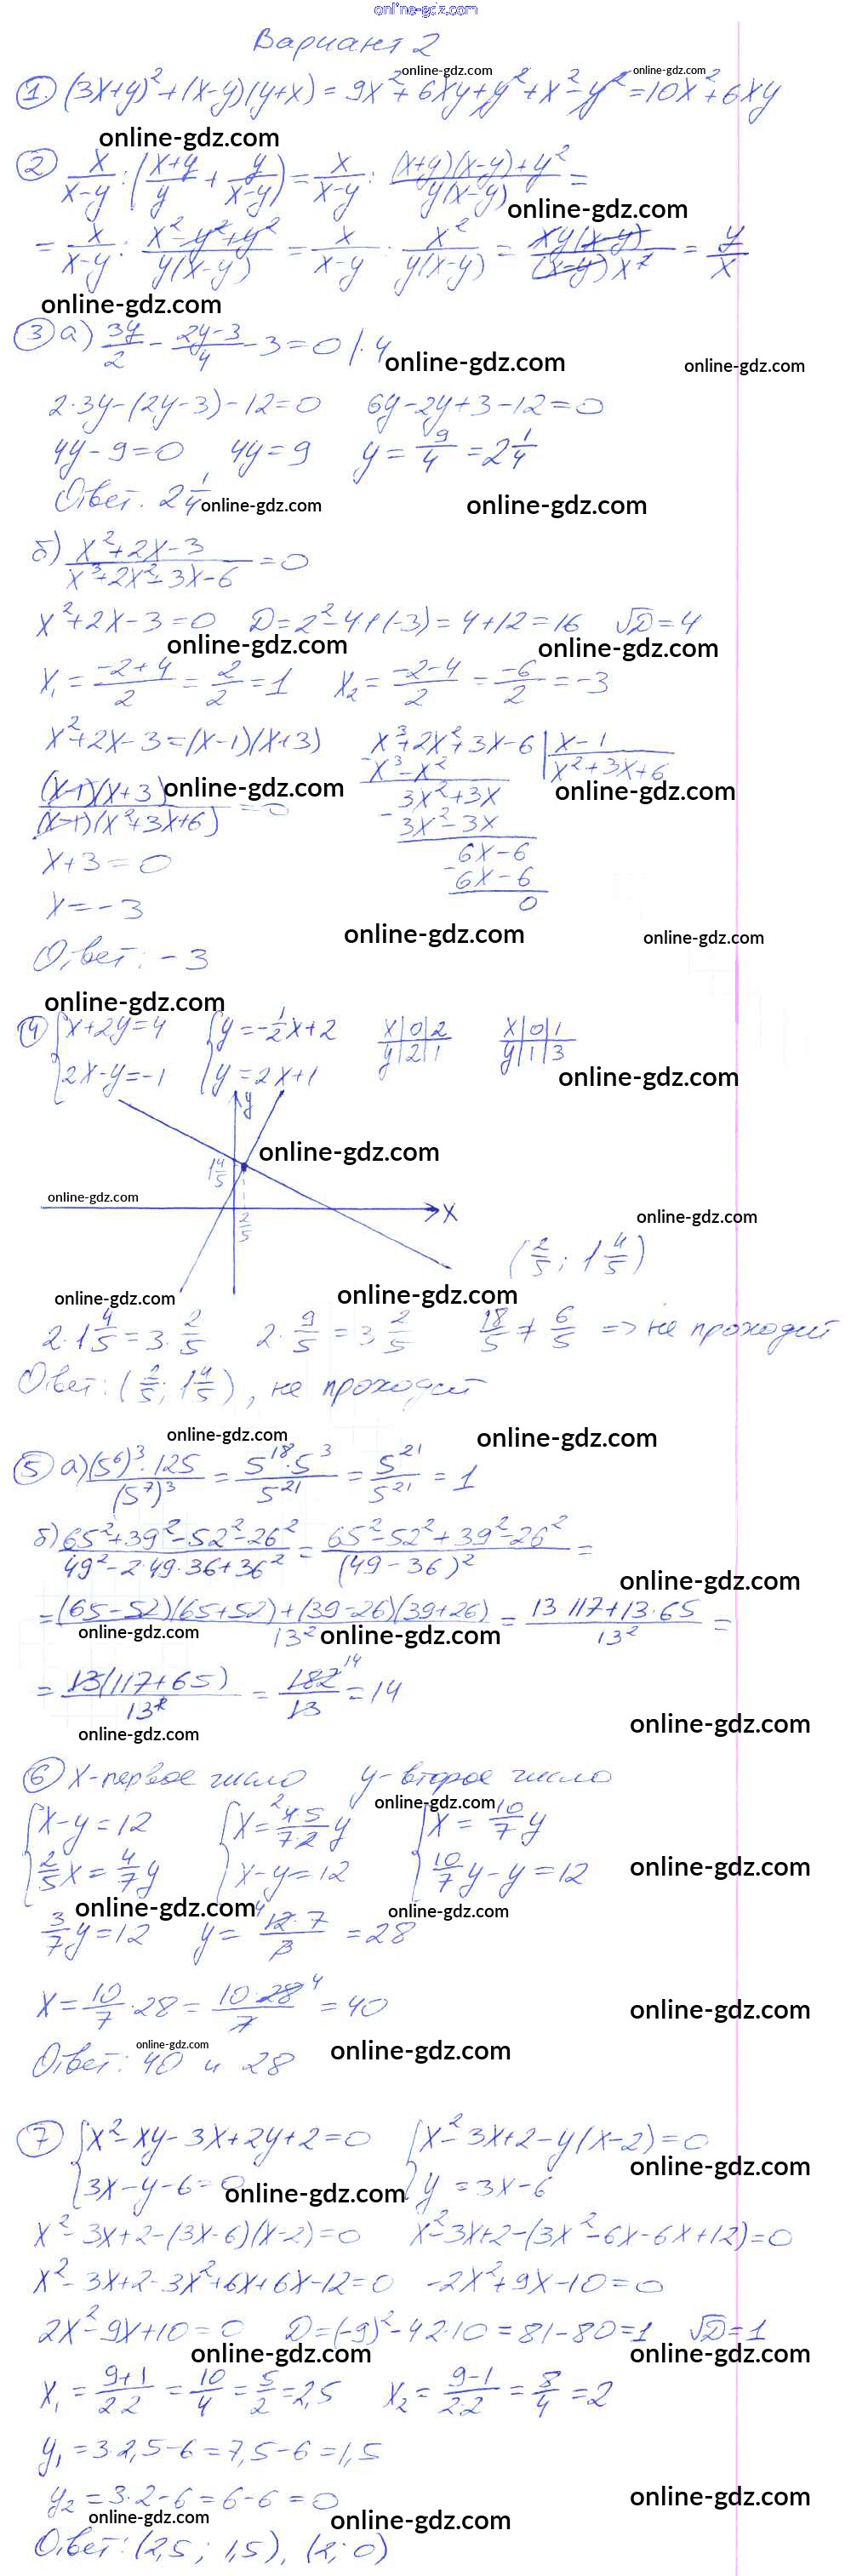 online-gdz.com
Вариант 2
① (3x+y)²+(x-y)(y+x) = 9x²+6xy+y²+x²-y²=10x²+6xy
online-gdz.com online-gdz.com
online-gdz.com
② x/(x-y) : ((x+y)/y + y/(x-y)) = x/(x-y) : ((x+y)(x-y)+y²)/(y(x-y)) =
online-gdz.com
= x/(x-y) : (x²-y²+y²)/(y(x-y)) = x/(x-y) : x²/(y(x-y)) = xy(x-y)/((x-y)x²) = y/x
online-gdz.com
③ а) 3y/2 - (2y-3)/4 - 3=0 |·4
online-gdz.com online-gdz.com
2·3y-(2y-3)-12=0 6y-2y+3-12=0
4y-9=0 4y=9 y= 9/4 =2 1/4
Ответ. 2 1/4
online-gdz.com online-gdz.com
б) (x²+2x-3)/(x³+2x²+3x-6) =0
x²+2x-3=0 D=2²-4·1·(-3)=4+12=16 √D=4
online-gdz.com online-gdz.com
x₁= (-2+4)/2 = 2/2 =1 x₂= (-2-4)/2 = -6/2 =-3
x²+2x-3=(x-1)(x+3) x³+2x²+3x-6 | x-1
x³-x² | x²+3x+6
(x-1)(x+3)/((x-1)(x²+3x+6)) =0 3x²+3x
online-gdz.com online-gdz.com
- 3x²-3x
x+3=0 6x-6
- 6x-6
x=-3 0
online-gdz.com online-gdz.com
Ответ: -3
online-gdz.com
④ {x+2y=4 {y=-1/2x+2 x|0|2 x|0|1
{2x-y=-1 {y=2x+1 y|2|1 y|1|3
online-gdz.com
y
online-gdz.com
1 4/5
online-gdz.com
x
2/5
online-gdz.com
(2/5; 1 4/5)
online-gdz.com online-gdz.com
2·1 4/5 = 3· 2/5 2· 9/5 =3· 2/5 18/5 ≠ 6/5 => не проходит
Ответ: (2/5; 1 4/5), не проходит
online-gdz.com online-gdz.com
⑤ а) (5⁶)³·125/(5⁷)³ = 5¹⁸·5³/5²¹ = 5²¹/5²¹ = 1
б) (65²+39²-52²-26²)/(49²-2·49·36+36²) = (65²-52²+39²-26²)/(49-36)² =
online-gdz.com
= ((65-52)(65+52)+(39-26)(39+26))/13² = (13·117+13·65)/13² =
online-gdz.com online-gdz.com
= 13(117+65)/13² = 182/13 14 =14
online-gdz.com online-gdz.com
⑥ x-первое число y-второе число
online-gdz.com
{x-y=12 {x= 4·5/7·2 y {x= 10/7 y
{2/5x= 4/7y {x-y=12 {10/7y-y=12
online-gdz.com
online-gdz.com online-gdz.com
3/7y=12 y= 12·7/3 =28
x= 10/7 ·28= 10·28/7 =40
online-gdz.com
online-gdz.com online-gdz.com
Ответ: 40 и 28
⑦ {x²-xy-3x+2y+2=0 {x²-3x+2-y(x-2)=0
online-gdz.com
{3x-y-6=0 {y=3x-6
online-gdz.com
x²-3x+2-(3x-6)(x-2)=0 x²-3x+2-(3x²-6x-6x+12)=0
x²-3x+2-3x²+6x+6x-12=0 -2x²+9x-10=0
2x²-9x+10=0 D=(-9)²-4·2·10=81-80=1 √D=1
online-gdz.com online-gdz.com
x₁= (9+1)/2·2 = 10/4 = 5/2 =2,5 x₂= (9-1)/2·2 = 8/4 =2
y₁=3·2,5-6=7,5-6=1,5
y₂=3·2-6=6-6=0
online-gdz.com
online-gdz.com online-gdz.com
Ответ: (2,5; 1,5), (2; 0)
online-gdz.com